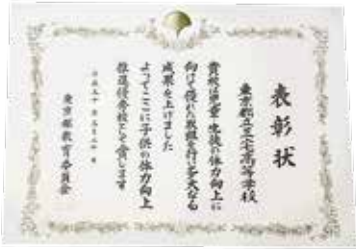 表彰状
東京都立三宅高等学校
貴校は児童・生徒の体力向上に
向けて優れた取組を行い多大なる
成果を上げました
よってここに子供の体力向上
推進優秀校と賞します
東京都教育委員会